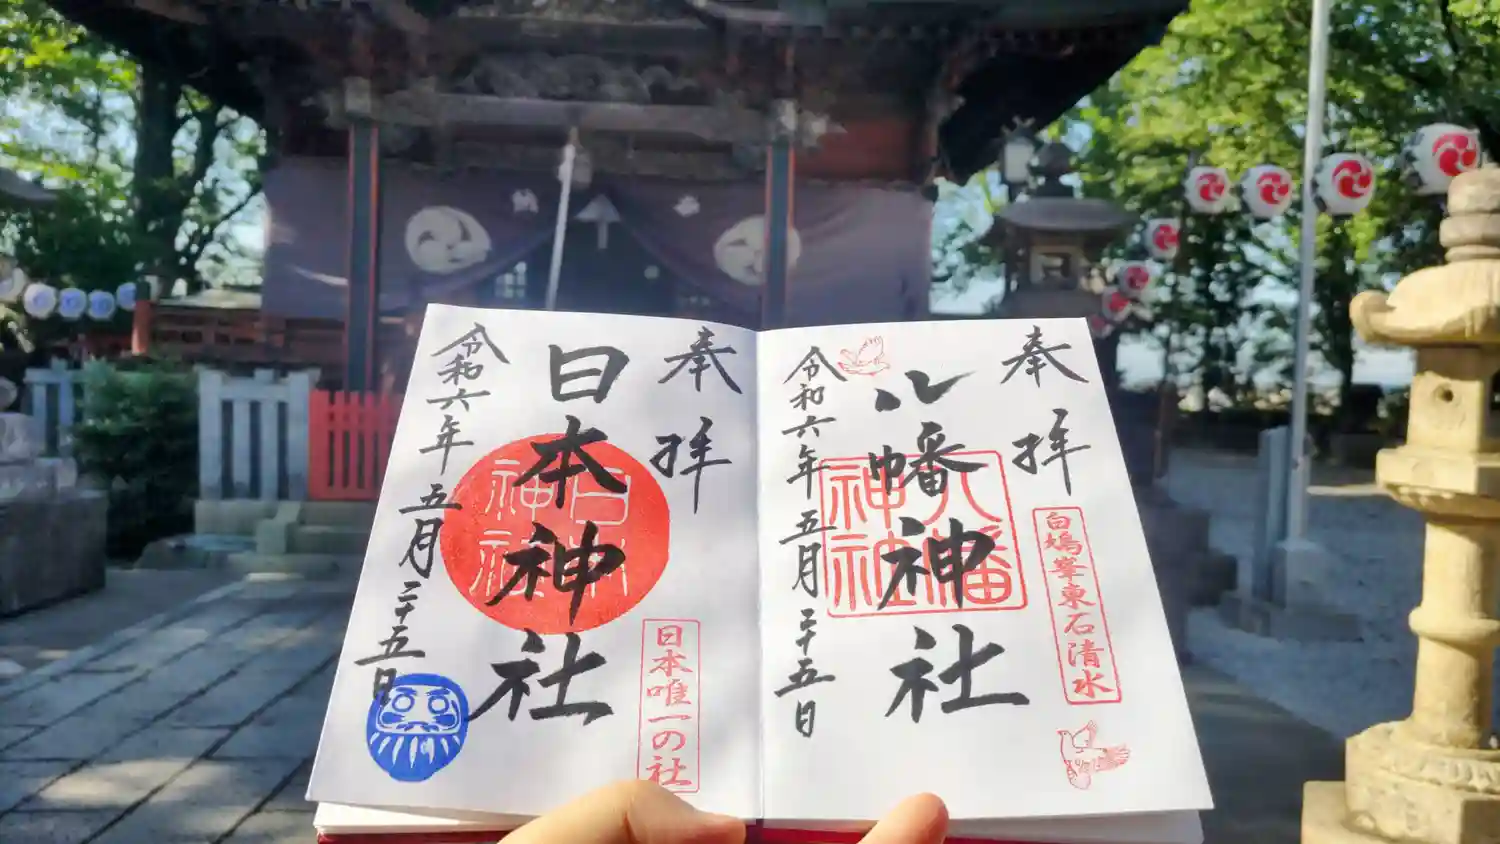 奉拝
八幡神社
八幡神社
白鳩峯東石清水
令和六年五月二十五日
奉拝
日本神社
日本神社
日本唯一の社
令和六年五月二十五日